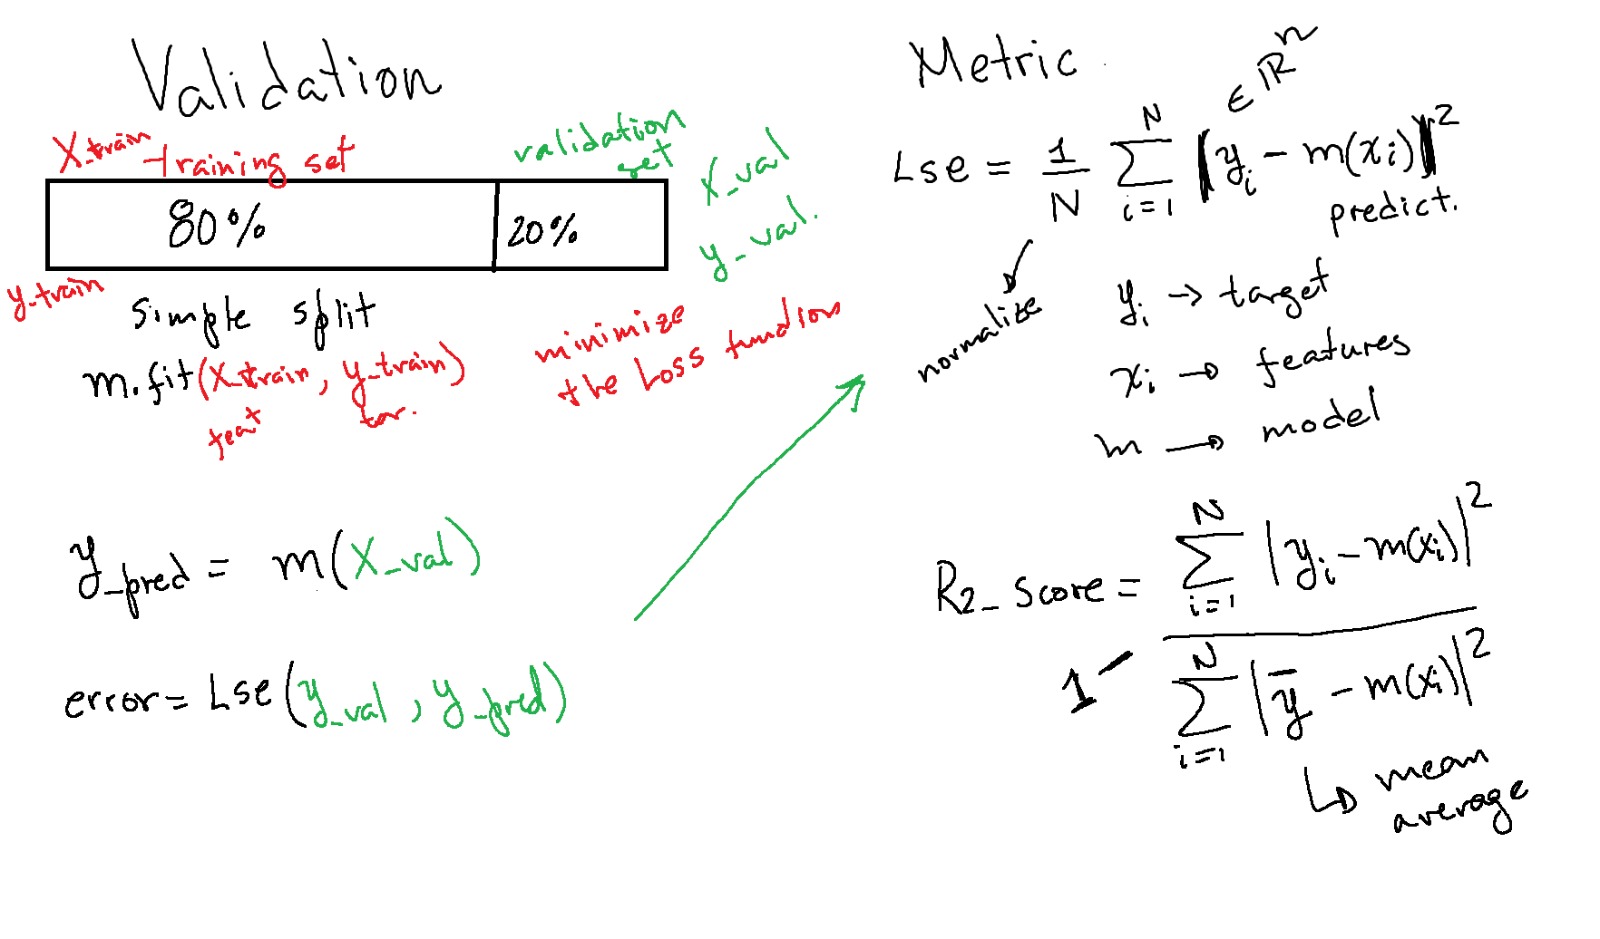 Validation
X_train training set
validation
set
X_val
y_val.
80% 20%
y_train
simple split
m.fit(X_train, y_train)
feat tar.
minimize
the Loss function
y_pred = m(X_val)
error = Lse(y_val, y_pred)
Metric
∈ ℝⁿ
Lse = 1/N ∑_{i=1}^{N} |y_i - m(x_i)|²
predict.
normalize
y_i → target
x_i → features
m → model
R2_score = 1 - ∑_{i=1}^{N} |y_i - m(x_i)|² / ∑_{i=1}^{N} |ȳ - m(x_i)|²
↳ mean
average